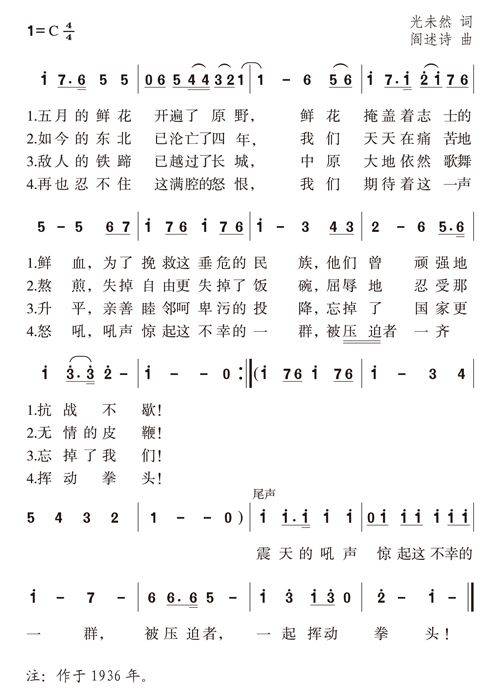 1=C 4/4
光未然 词
阎述诗 曲
i 7.6 5 5 | 065 44 321 | 1 - 6 56 | i 7.i 2i 76 |
1.五月的鲜花 开遍了 原野， 鲜花 掩盖着志士的
2.如今的东北 已沦亡了四年， 我们 天天在痛苦地
3.敌人的铁蹄 已越过了长城， 中原 大地依然歌舞
4.再也忍不住 这满腔的怒恨， 我们 期待着这一声
5 - 5 67 | i 76 i 76 | i - 3 43 | 2 - 6 5.6 |
1.鲜 血，为了 挽 救这 垂危的民 族，他们 曾 顽强地
2.熬 煎，失掉 自由更 失掉了饭 碗，屈辱 地 忍受那
3.升 平，亲善 睦邻呵 卑污的投 降，忘掉了 国家更
4.怒 吼，吼声 惊起这 不幸的一 群，被压 迫者 一齐
i 3.3 2 - | i - - 0 :‖ (i 76 i 76 | i - 3 4 |
1.抗 战 不 歇！
2.无 情的皮 鞭！
3.忘 掉了我 们！
4.挥 动 拳 头！
尾声
5 4 3 2 | 1 - - 0) | i i.i i i | 0i ii ii ii |
震 天的 吼 声 惊起这 不幸的
i - 7 - | 66.5 6 - | i 3 i30 | 2 - i - ‖
一 群， 被压 迫者， 一 起 挥动 拳 头！
注：作于1936年。